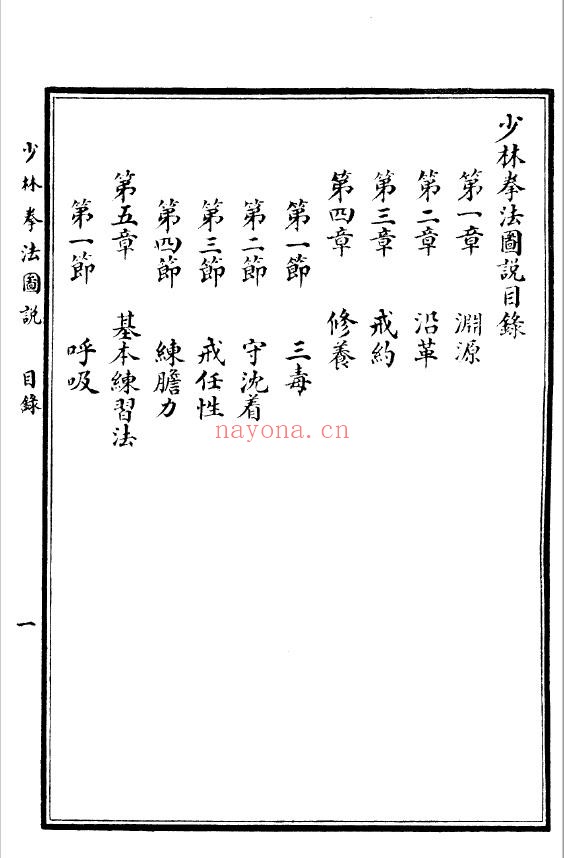 少林拳法圖說目錄
第一章 淵源
第二章 沿革
第三章 戒約
第四章 修養
第一節 三毒
第二節 守沈着
第三節 戒任性
第四節 練膽力
第五章 基本練習法
第一節 呼吸
少林拳法圖說 目錄 一
nayona.cn